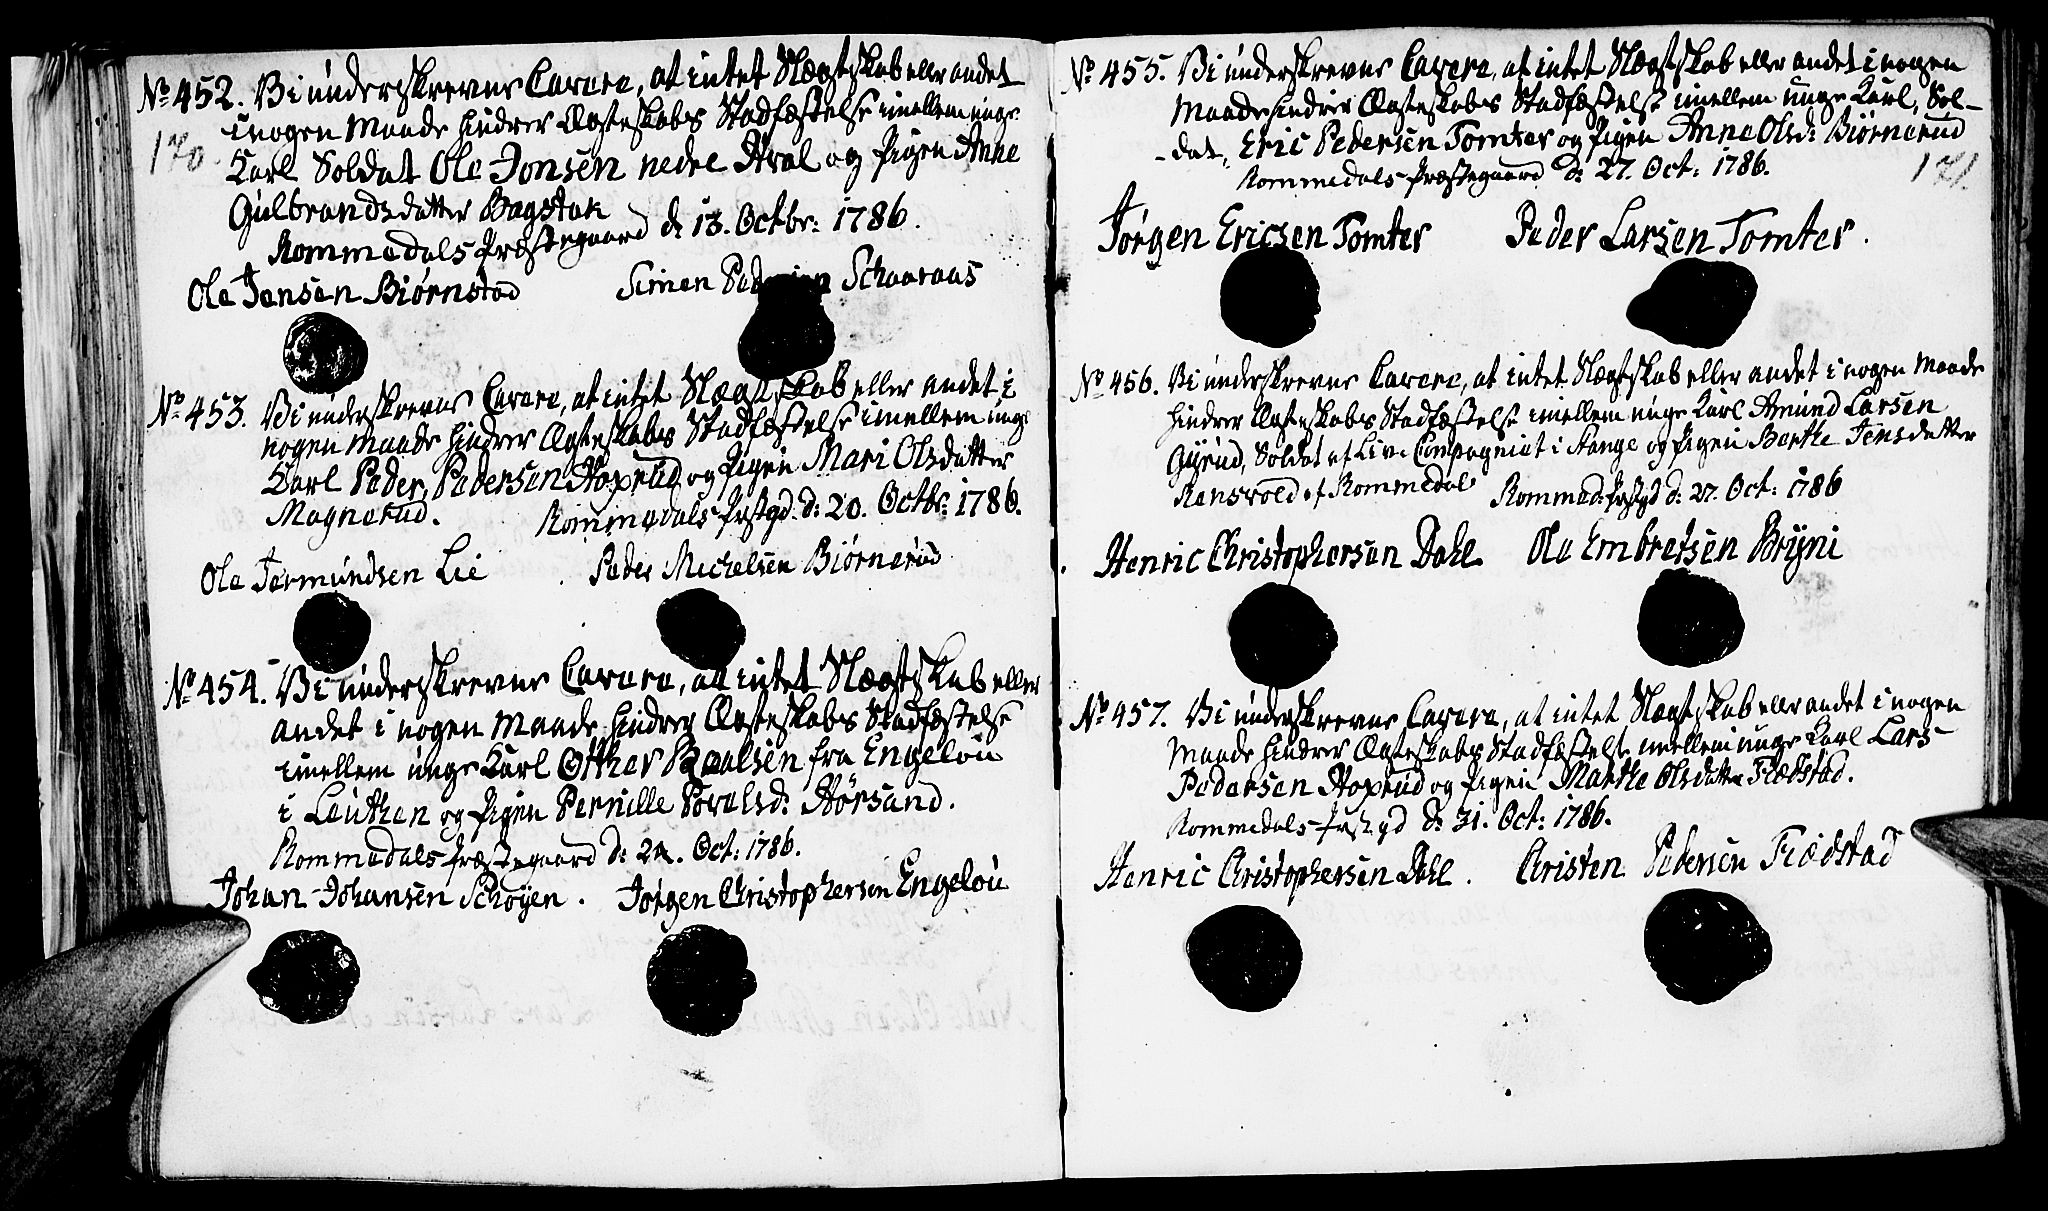 No 452. Vi underskrevne Cavere, at intet Slægtskab eller andet
170.
i nogen Maade hindrer Ægteskabs Stadfæstelse imellem unge
Karl Soldat Ole Jonsen nedre Aral og Pigen Anne
Gulbrandsdatter Bagstak
Rommedals Præstegaard d: 13. Octbr: 1786.
Ole Jensen Biørnstad Simen Pedersen Schaaraas
No 453. Vi underskrevne Cavere, at intet Slægtskab eller andet i
nogen Maade hindrer Ægteskabs Stadfæstelse imellem unge
Karl Peder Pedersen Hoxrud og Pigen Mari Olsdatter
Magnerud. Rommedals Prstgd. d: 20. Octbr: 1786.
Ole Jermundsen Lie Peder Michelsen Biørnerud
No 454. Vi underskrevne Cavere, at intet Slægtskab eller
andet i nogen Maade hindrer Ægteskabs Stadfæstelse
imellem unge Karl Otther Paalsen fra Engelou
i Leuthen og Pigen Pernille Povelsd: Hørsand.
Rommedals Præstegaard d: Oct: 1786.
Johan Johansen Schøyen. Jørgen Christophersen Engelou
No 455. Vi underskrevne Cavere, at intet Slægtskab eller andet i nogen
Maade hindrer Ægteskabs Stadfæstelse imellem unge Karl, Sol-
-dat, Eric Pedersen Tomter og Pigen Anne Olsd: Biørnerud
171.
Rommedals Præstegaard d: 27. Oct: 1786.
Jørgen Ericsen Tomter Peder Larsen Tomter.
No 456. Vi underskrevne Cavere, at intet Slægtskab eller andet i nogen Maade
hindrer Ægteskabs Stadfæstelse imellem unge Karl Amund Larsen
Gyrud, Soldat af Liv-Compagniet i Stange og Pigen Berthe Jensdatter
Ransvold af Rommedal Rommed: Prstgd d: 27. Oct: 1786
Henric Christophersen Dahl Ole Embretsen Bryni
No 457. Vi underskrevne Cavere, at intet Slægtskab eller andet i nogen
Maade hindrer Ægteskabs Stadfæstelse imellem unge Karl Lars
Pedersen Hoxrud og Pigen Marthe Olsdatter Flødstad.
Rommedals Prstgd d: 31. Oct: 1786.
Henric Christophersen Dahl. Christen Pedersen Flødstad